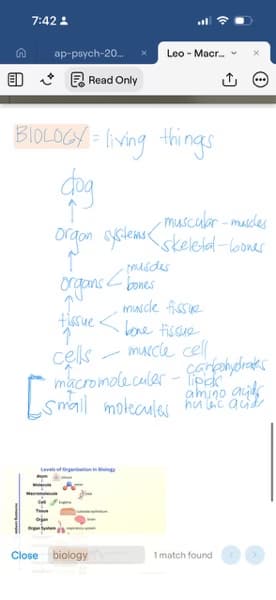 7:42
ap-psych-20...
Leo - Macr...
Read Only
BIOLOGY = living things
dog
organ systems
muscular - muscles
skeletal - bones
organs
muscles
bones
tissue
muscle tissue
bone tissue
cells - muscle cell
macromolecules -
carbohydrates
lipids
amino acids
nucleic acids
small molecules
Levels of Organization in Biology
Atom
Molecule
Macromolecule
Cell
Tissue
Organ
Organ System
Close
biology
1 match found